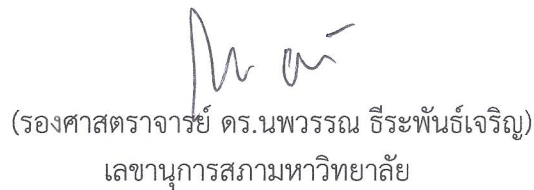 (รองศาสตราจารย์ ดร.นพวรรณ ธีระพันธ์เจริญ)
เลขานุการสภามหาวิทยาลัย